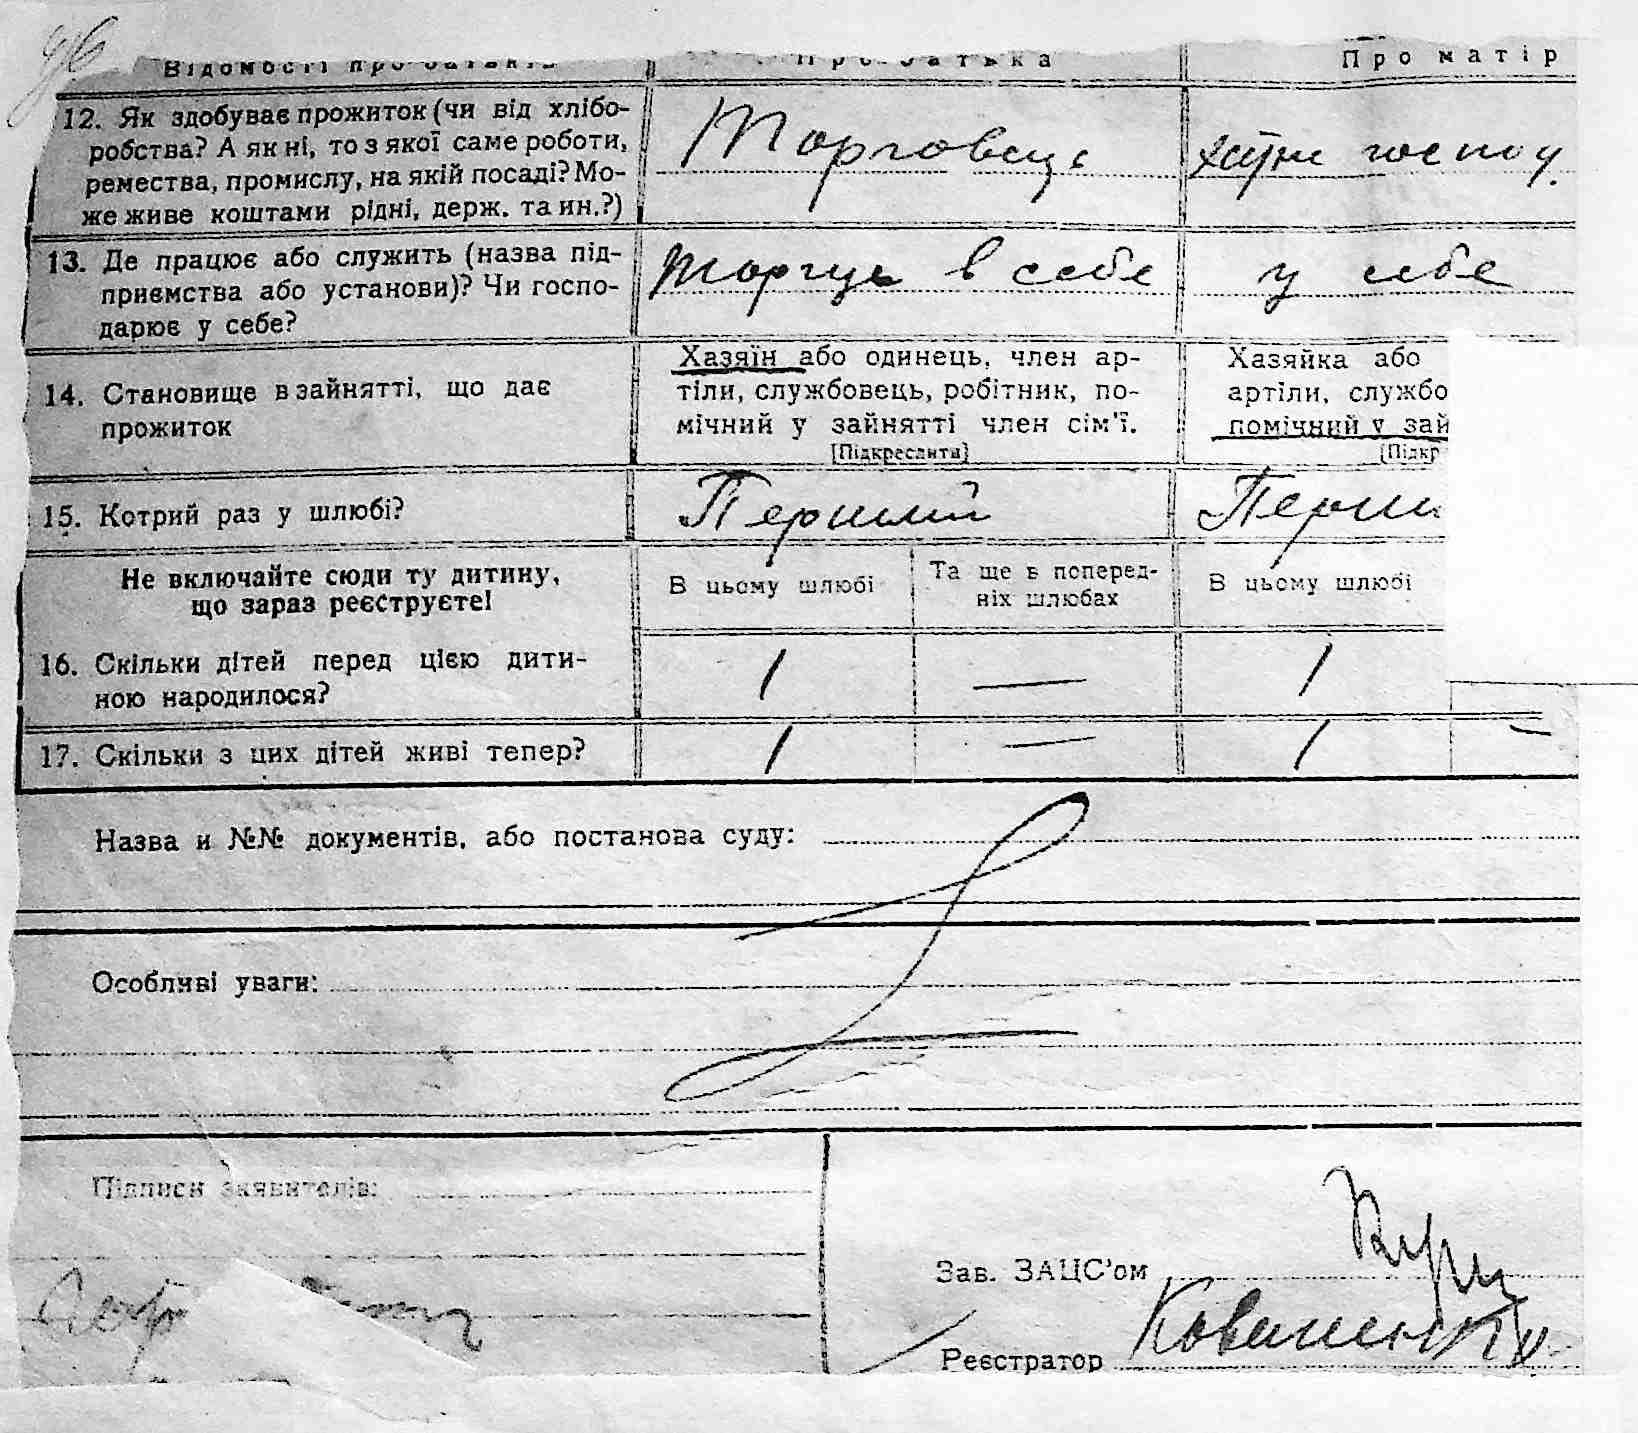 Відомості про батьків Про батька Про матір
12. Як здобуває прожиток (чи від хлібо- Торговець хатне господ.
робства? А як ні, то з якої саме роботи,
ремества, промислу, на якій посаді? Мо-
же живе коштами рідні, держ. та ин.?)
13. Де працює або служить (назва під- Торгує в себе у себе
приємства або установи)? Чи госпо-
дарює у себе?
14. Становище в зайнятті, що дає
прожиток
Хазяїн або одинець, член ар-
тіли, службовець, робітник, по-
мічний у зайнятті член сім'ї.
[Підкреслити]
Хазяйка або
артіли, службо
помічний у зай
[Підкр
15. Котрий раз у шлюбі? Перший Перши
Не включайте сюди ту дитину,
що зараз реєструєте!
В цьому шлюбі
Та ще в поперед-
ніх шлюбах
В цьому шлюбі
16. Скільки дітей перед цією дити- 1 — 1
ною народилося?
17. Скільки з цих дітей живі тепер? 1 — 1 —
Назва и №№ документів, або постанова суду:
Особливі уваги:
Підписи заявителів:
Зав. ЗАЦС'ом
Реєстратор